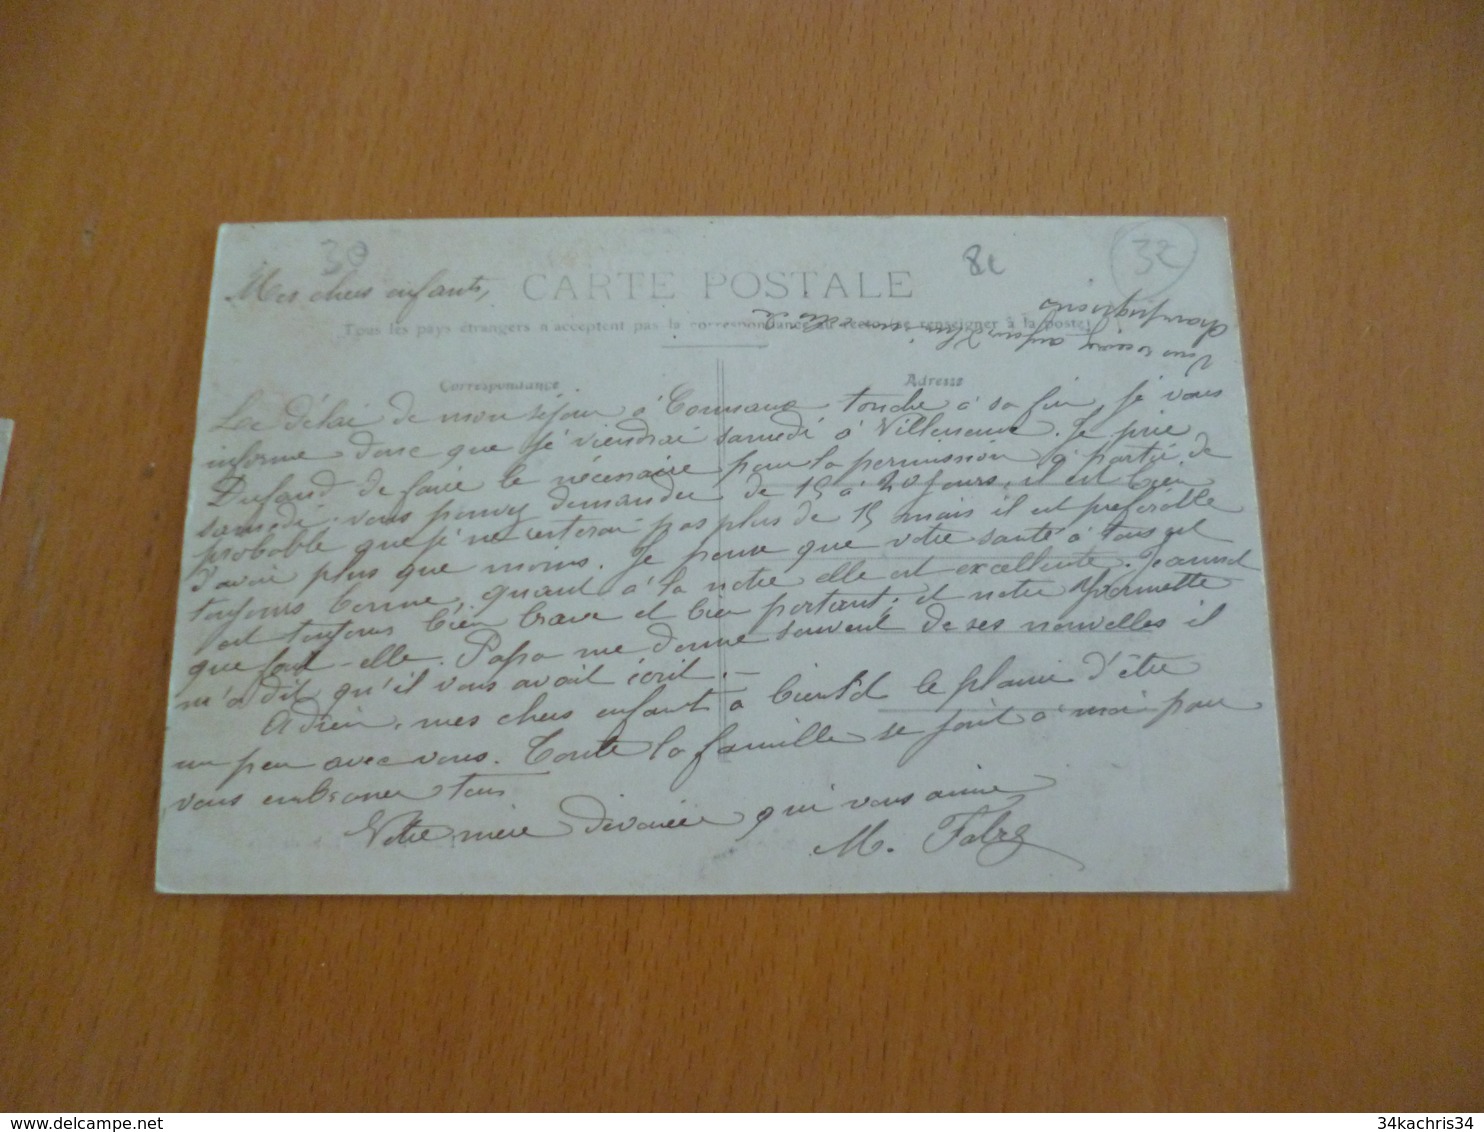 30
8c
32
Mes chers enfants,
CARTE POSTALE
Tous les pays étrangers n'acceptent pas la correspondance au recto (se renseigner à la poste)
Correspondance
Adresse
Le délai de mon séjour à touche à sa fin, je vous
informe donc que je viendrai samedi à Villeneuve. Je prie
Dufaud de faire le nécessaire pour la permission à partir de
samedi. vous pouvez demander de 15 à 20 jours, il est bien
probable que je ne resterai pas plus de 15 mais il est préférable
d'avoir plus que moins. Je pense que votre santé à tous est
toujours bonne, quant à la notre elle est excellente. Jeannot
est toujours bien brave et bien portant, et notre Yvonnette
que fait-elle. Papa me donne souvent de ses nouvelles il
m'a dit qu'il vous avait écrit.-
Adieu, mes chers enfants à bientôt le plaisir d'être
un peu avec vous. Toute la famille se joint à moi pour
vous embrasser tous
Votre mère dévouée qui vous aime
M. Fabre
34kachris34
34kachris34